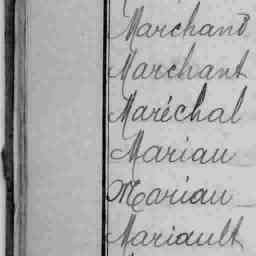 Marchand
Marchant
Maréchal
Mariau
Mariau
Mariault